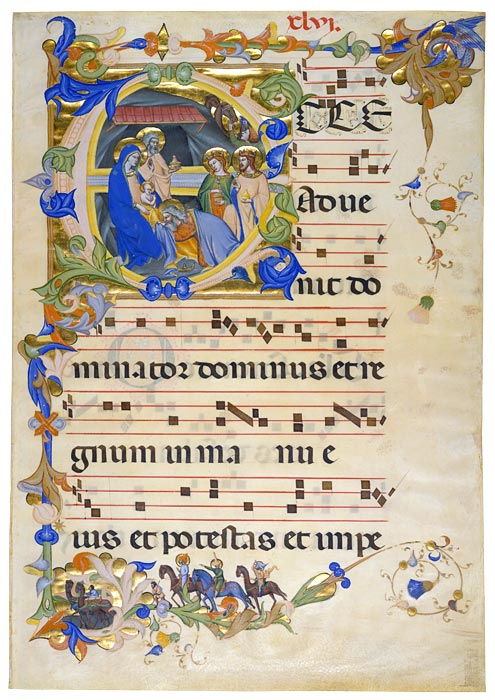 xlvi.
ECCE
Adue
nit do
minator dominus et re
gnum in ma nu e
ius et potestas et impe